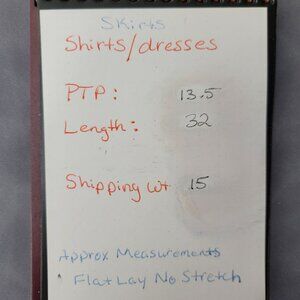 Skirts
Shirts/dresses
PTP: 13.5
Length: 32
Shipping wt 15
Approx Measurements
Flat Lay No Stretch